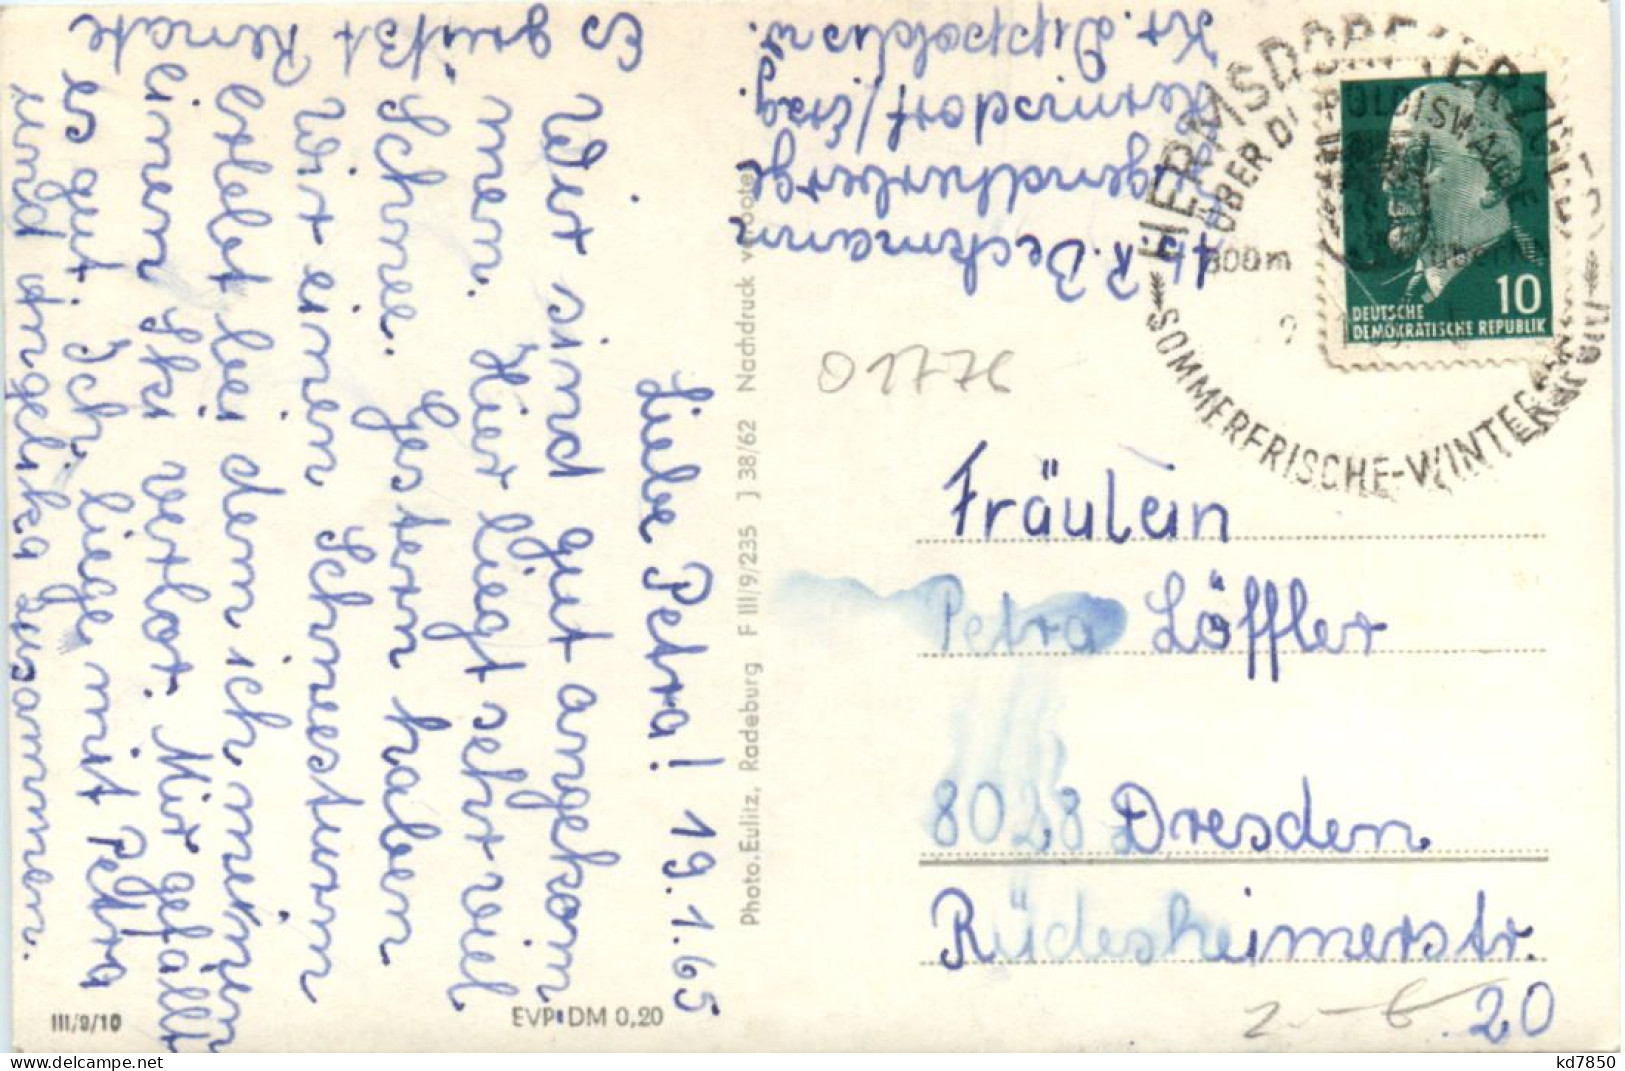 Liebe Petra! 19.1.65
Wir sind gut angekom
men. Hier liegt sehr viel
Schnee. Gestern haben
Wir einen Schneesturm
erlebt bei dem ich meinen
einen Ski verlor. Mir gefällt
es gut. Ich liege mit Petra
und Angelika zusammen.
Es grüßt Renate
R. Beckmann
Jugendherberge
Hermsdorf/Erzg.
Kr. Dippoldisw.
Photo. Eulitz, Radeburg F III/9/235 J 38/62 Nachdruck verboten
III/9/10
EVP DM 0,20
01776
HERMSDORF / ERZGEB
ÜBER DIPPOLDISWALDE
800m
SOMMERFRISCHE-WINTER
10
DEUTSCHE
DEMOKRATISCHE REPUBLIK
Fräulein
Petra Löffler
8028 Dresden
Rüdesheimerstr.
20
kd7850